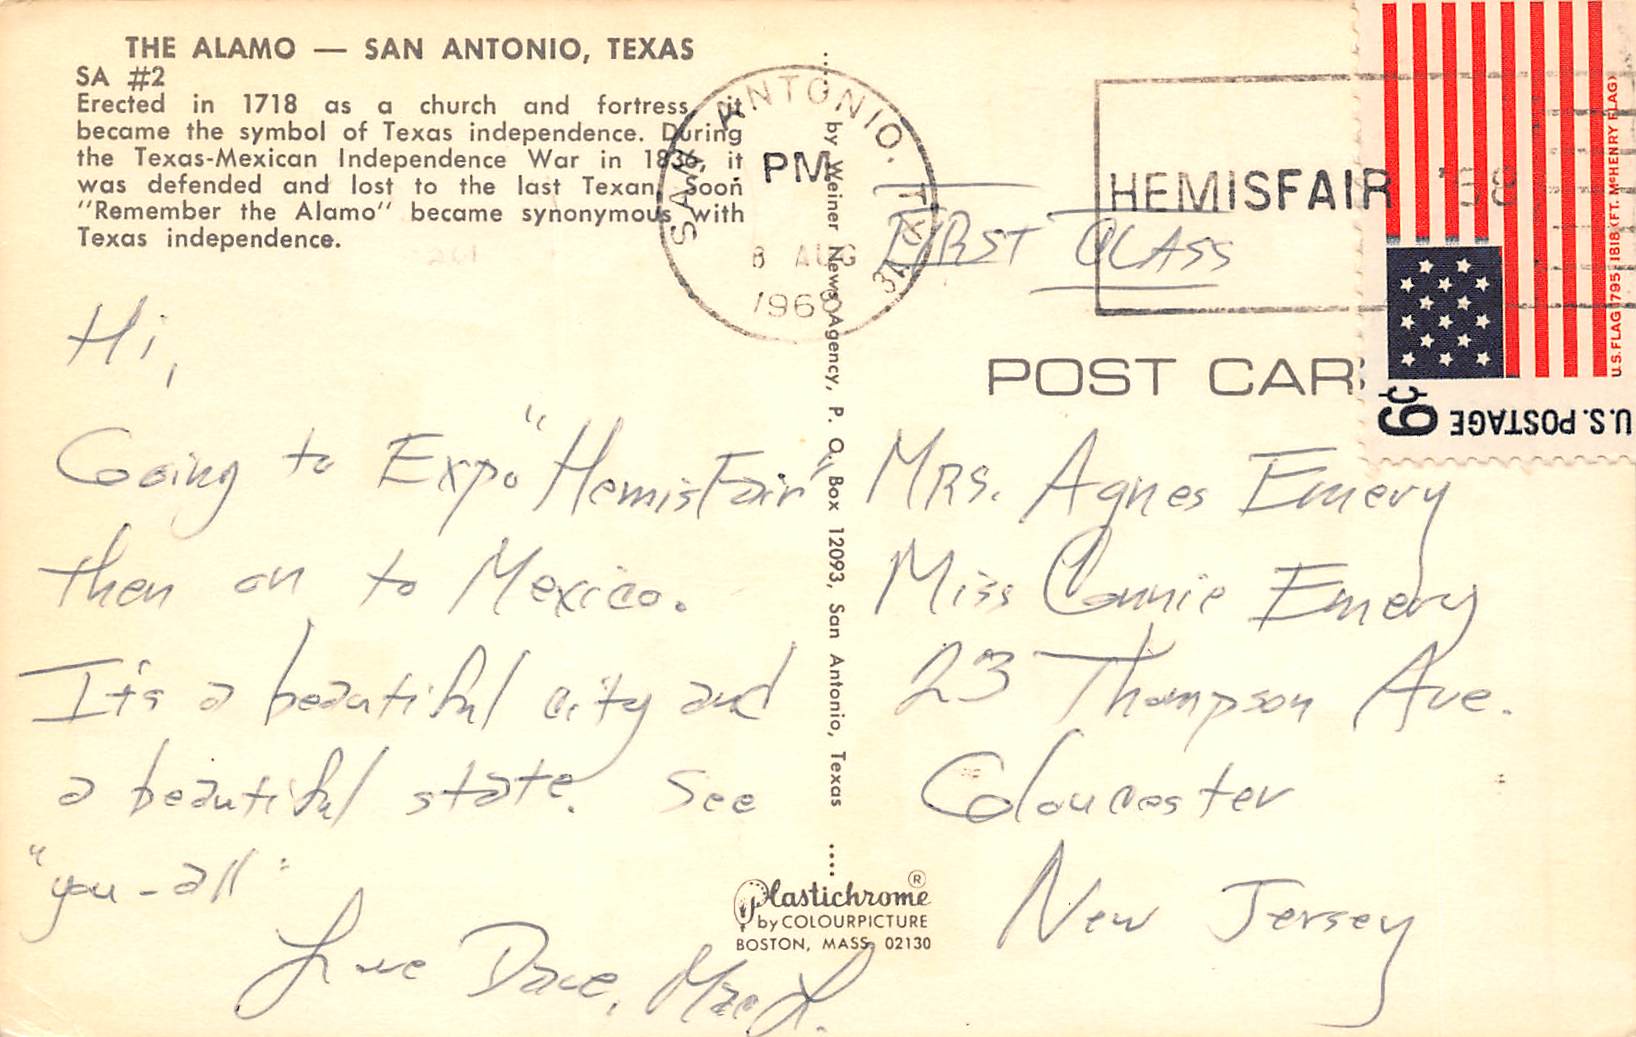 THE ALAMO — SAN ANTONIO, TEXAS
SA #2
Erected in 1718 as a church and fortress, it
became the symbol of Texas independence. During
the Texas-Mexican Independence War in 1836, it
was defended and lost to the last Texan. Soon
"Remember the Alamo" became synonymous with
Texas independence.
Hi,
Going to Expo "HemisFair"
then on to Mexico.
It's a beautiful city and
a beautiful state. See
"you-all"
Love Dave,
..... by Weiner News Agency, P. O. Box 12093, San Antonio, Texas ....
Plastichrome ®
by COLOURPICTURE
BOSTON, MASS. 02130
SAN ANTONIO, TX
PM
8 AUG
1968
HEMISFAIR '68
FIRST CLASS
POST CAR
U.S. FLAG 1795-1818 (FT. McHENRY FLAG)
6c U.S. POSTAGE
MRS. Agnes Emery
Miss Connie Emery
23 Thompson Ave.
Gloucester
New Jersey